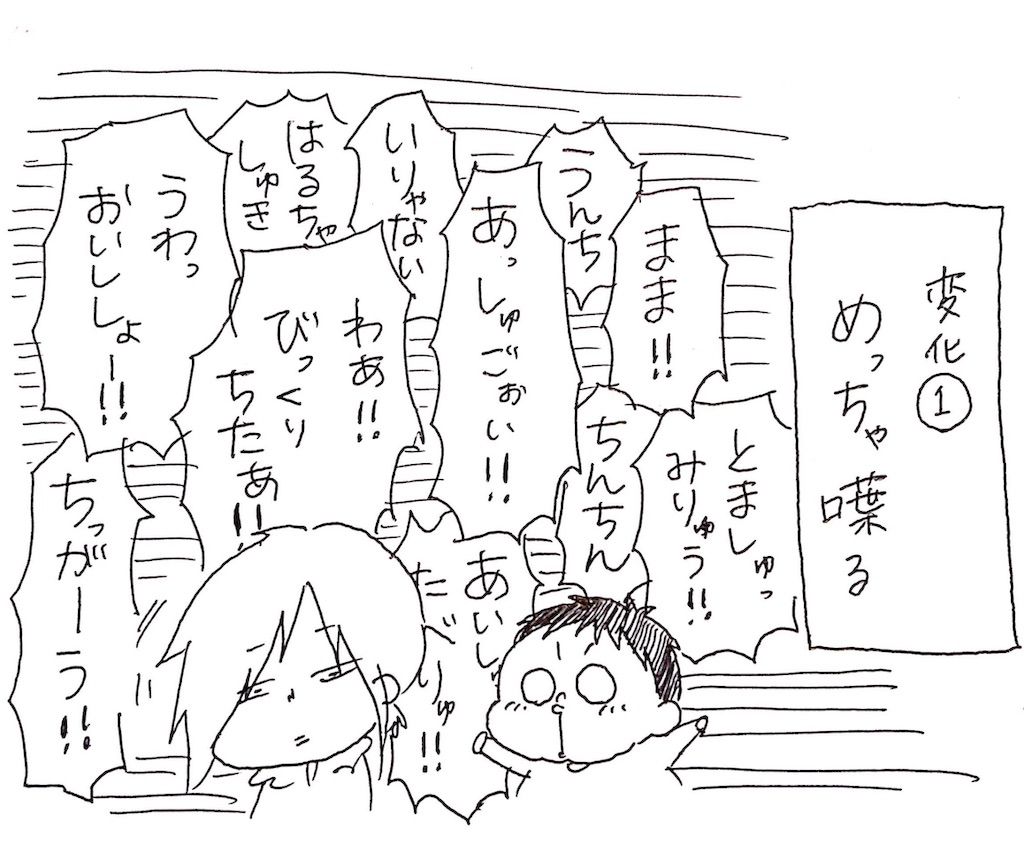 変化①
めっちゃ喋る
まま!!
とましゅっ
みりゅう!!
うんち
ちんちん
あっしゅごぉい!!
あいし
りゅ!!
いりゃない
わあ!!
びっくり
ちたあ!!
はるちゃ
しゅき
うわっ
おいししょー!!
ちっがーう!!